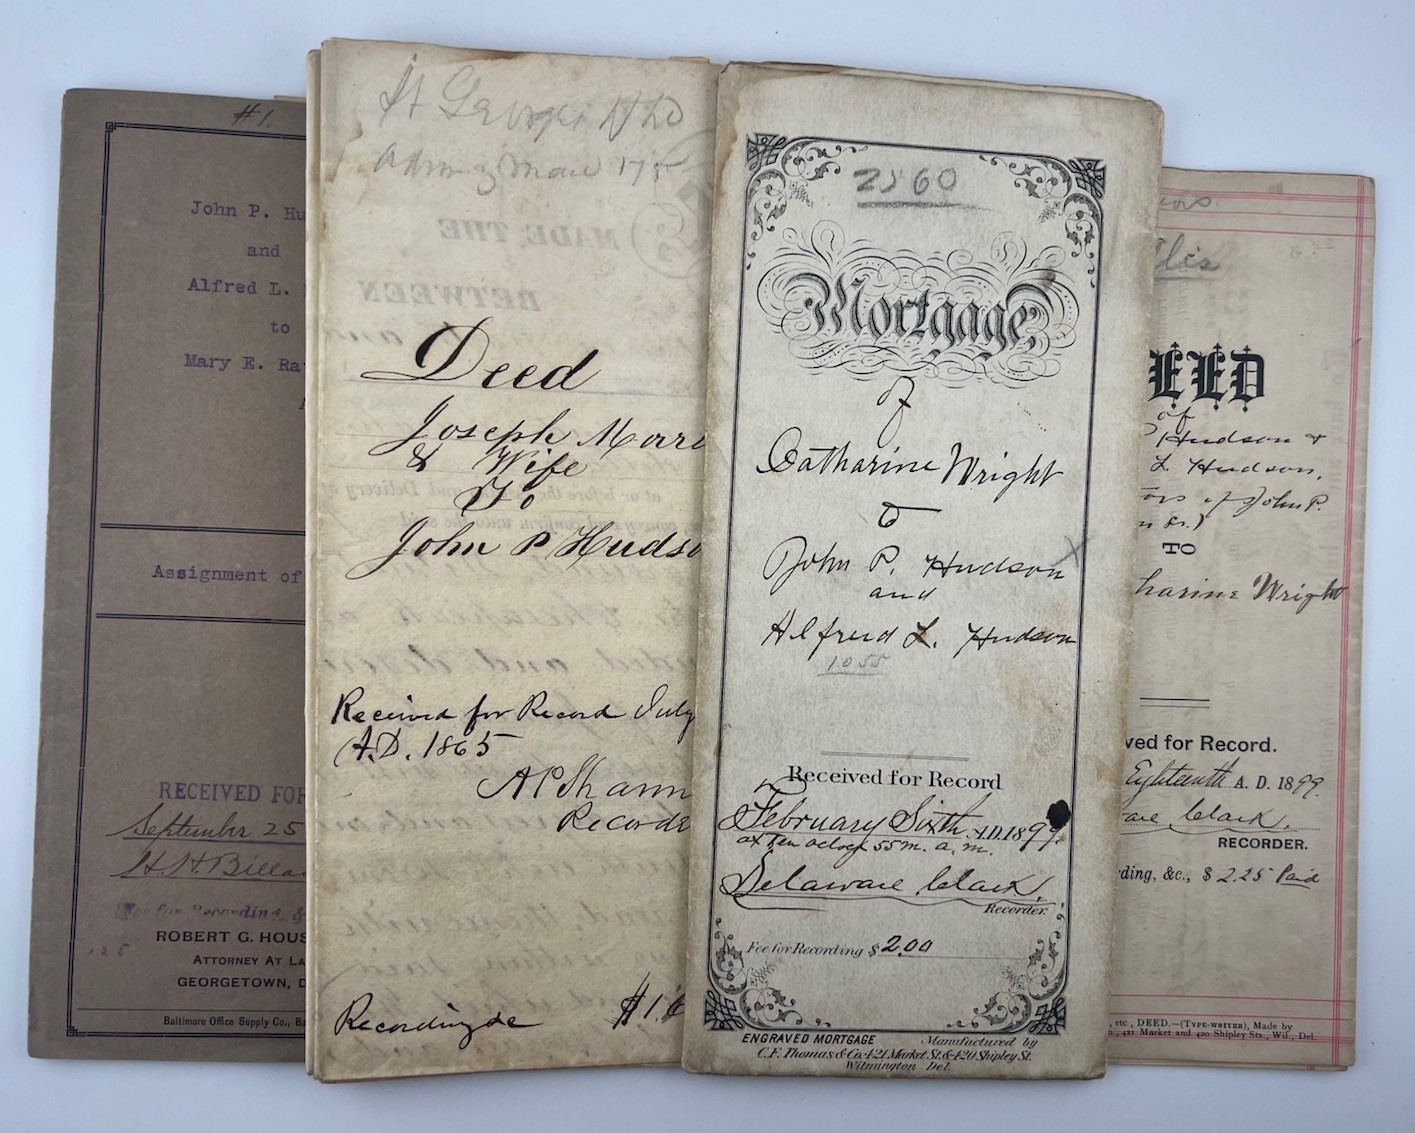 #1.
John P. Hu
and
Alfred L.
to
Mary E. Ra
Assignment of
RECEIVED FOR
September 25
H. H. Billa
Fee for Recording, &
.25
ROBERT G. HOUS
ATTORNEY AT LA
GEORGETOWN, D
Baltimore Office Supply Co., Ba
St Georges Hd
MADE THE
BETWEEN
Deed
Joseph Morri
& Wife
To
John P Hudso
at or before the and Delivery of
Received for Record July
A.D. 1865
A P Shann
Recorde
Recording &c $1.6
2560
Mortgage
of
Catharine Wright
to
John P. Hudson
and
Alfred L. Hudson
1055
Received for Record
February Sixth A.D. 1899.
at ten oclock 55 m. a. m.
Delaware Clark,
Recorder.
Fee for Recording $2.00
ENGRAVED MORTGAGE Manufactured by
C.F. Thomas & Co. 421 Market St. & 420 Shipley St.
Wilmington Del.
EED
of
P Hudson &
L. Hudson,
ors of John P.
n Sr.)
TO
harine Wright
ved for Record.
Eighteenth A. D. 1899.
are Clark.
RECORDER.
ding, &c., $ 2.25 Paid
, etc , DEED.—(TYPE-WRITER), Made by
421 Market and 420 Shipley Sts., Wil., Del.